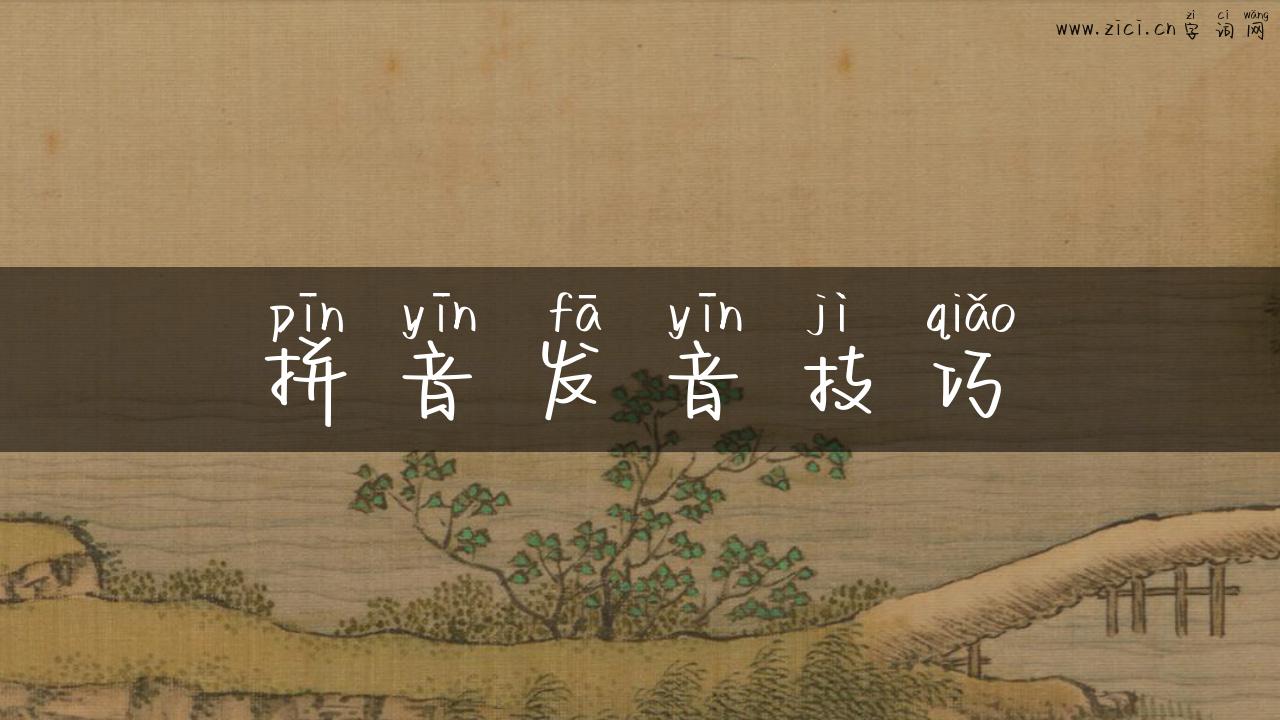 zì cí wǎng
www.zici.cn 字词网
pīn yīn fā yīn jì qiǎo
拼音发音技巧